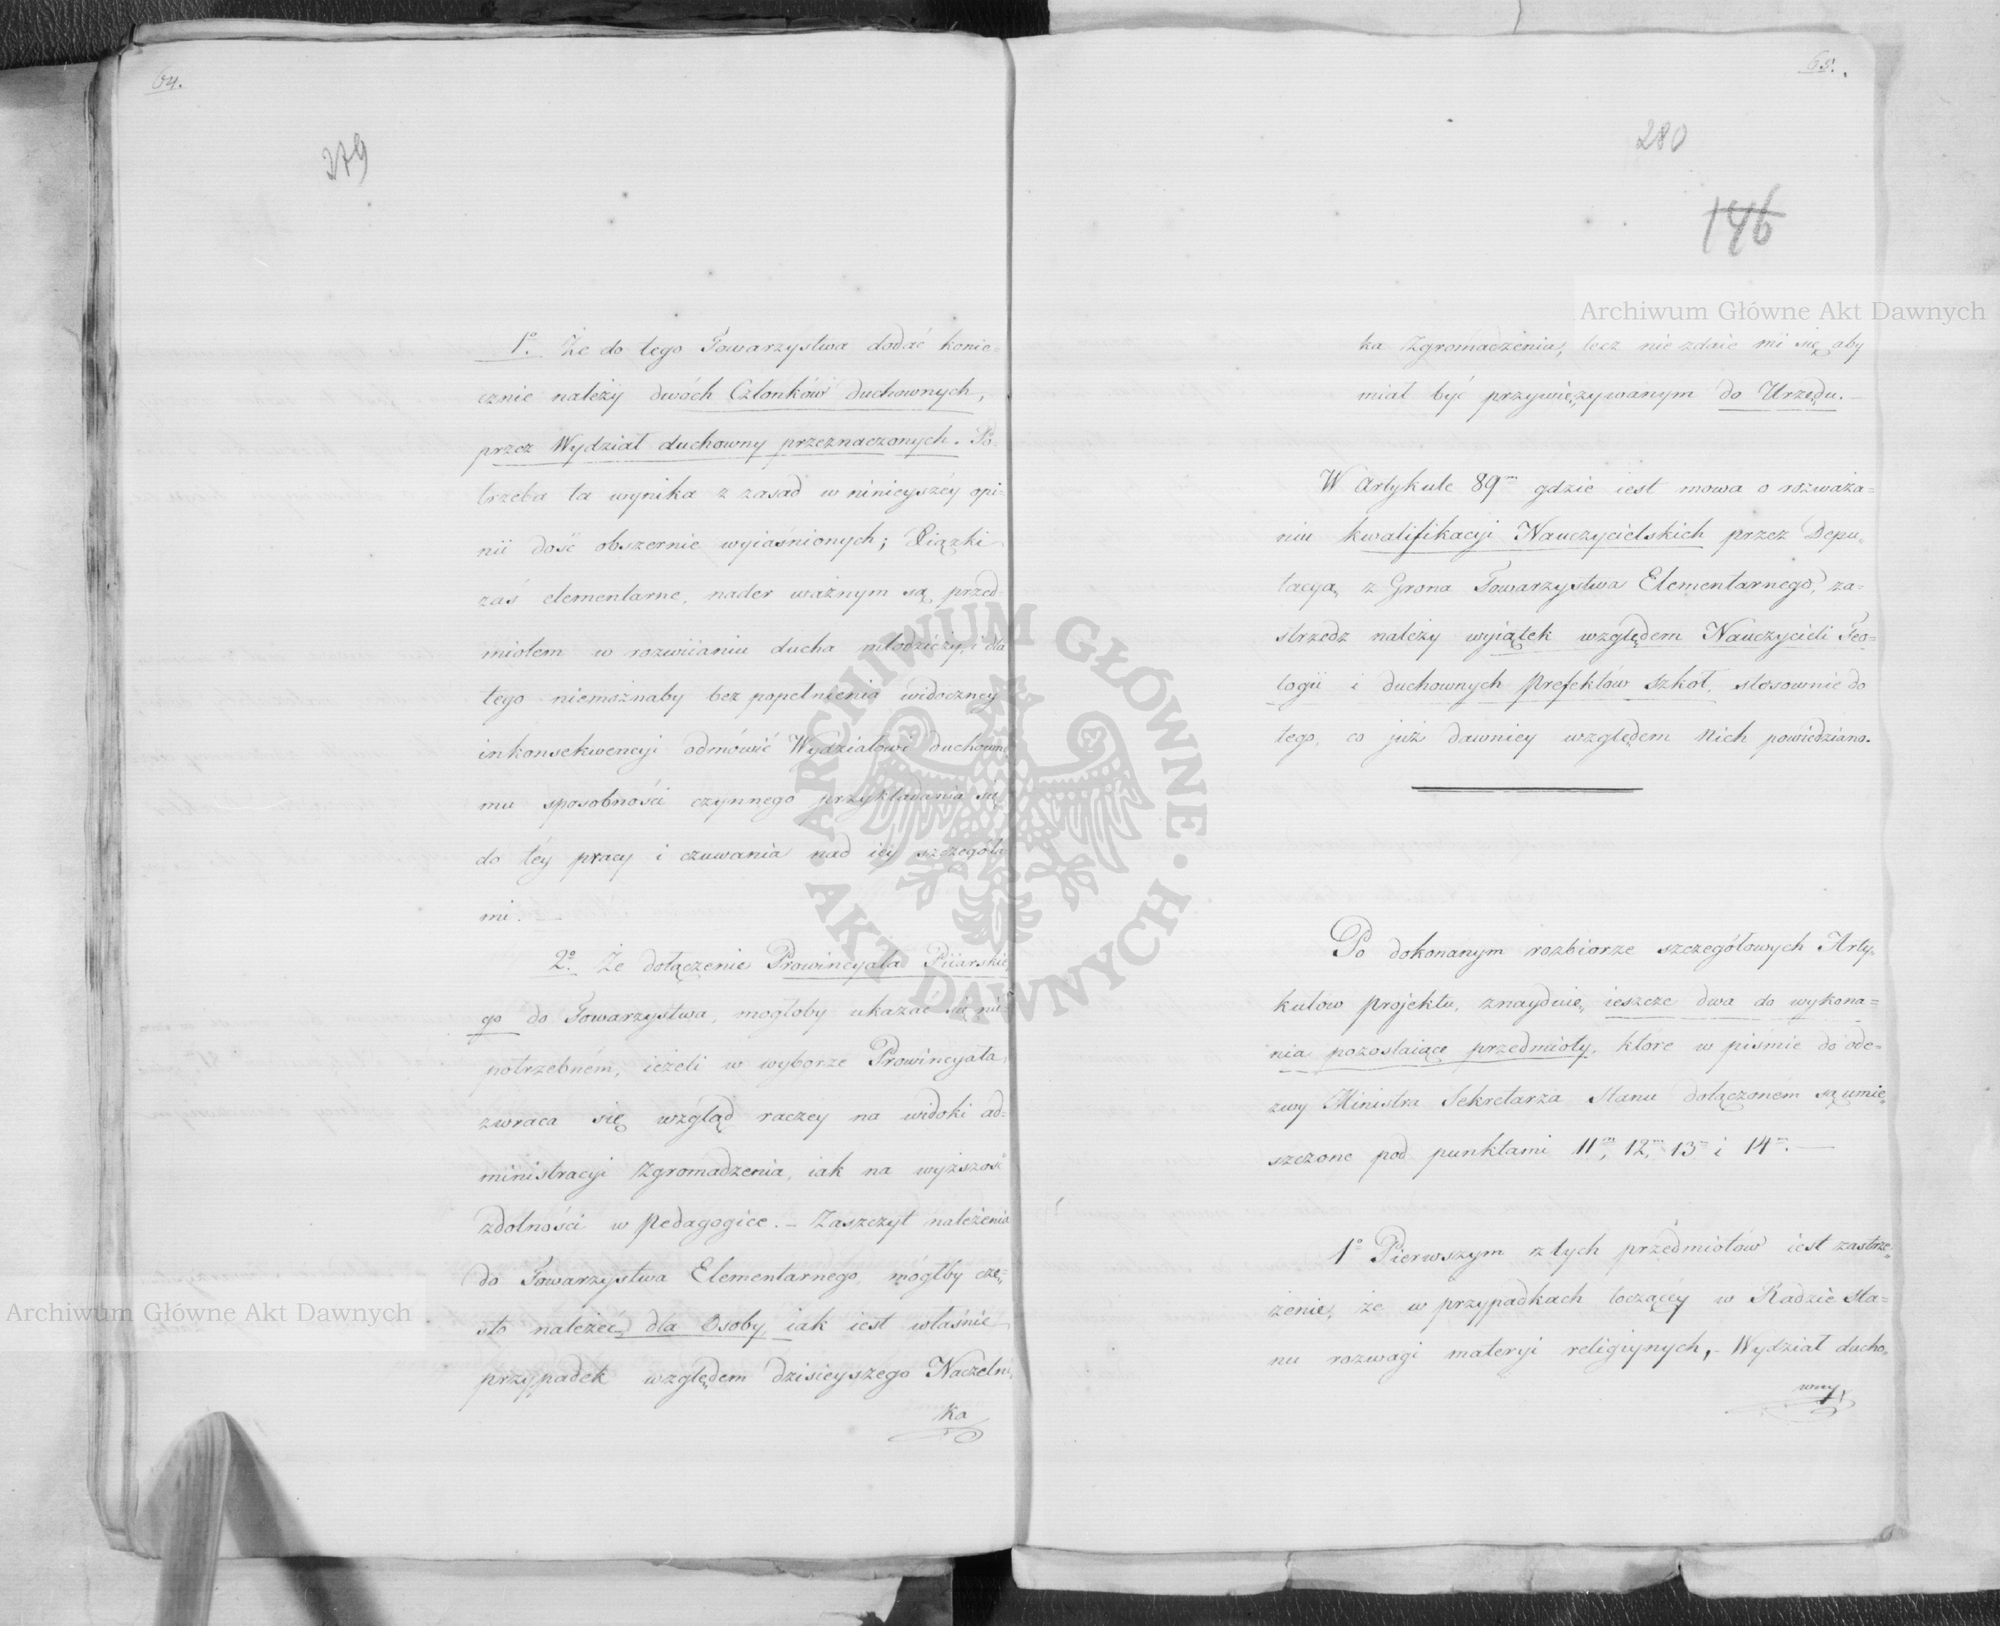 64.
279
1º. Że do tego Towarzystwa dodać konie=
cznie należy dwóch Członków duchownych,
przez Wydział duchowny przeznaczonych. Po=
trzeba ta wynika z zasad w ninieyszéy opi=
nii dość obszernie wyiaśnionych; Xiążki
zaś elementarne, nader ważnym są przed=
miotem w rozwiianiu ducha młodzieży, i dla
tego niemożnaby bez popełnienia widoczney
inkonsekwencyi odmówić Wydziałowi duchowne=
mu sposobności czynnego przykładania się
do téy pracy i czuwania nad iéy szczegóła=
mi. —
2º. Że dołączenie Prowincyała Piiarskie=
go do Towarzystwa, mogłoby ukazać się nie=
potrzebném, ieżeli w wyborze Prowincyała,
zwraca się wzgląd raczey na widoki ad=
ministracyi Zgromadzenia, iak na wyższość
zdolności w Pedagogice. — Zaszczyt należenia
do Towarzystwa Elementarnego, mógłby czę=
sto należeć dla Osoby, iak iest właśnie
przypadek względem dzisieyszego Naczelni=
ka
65.
280
146
ka Zgromadzenia, lecz nie zdaie mi się aby
miał być przywięzywanym do Urzędu. —
W Artykule 89m gdzie iest mowa o rozważa=
niu kwalifikacyi Nauczycielskich przez Depu=
tacyą z Grona Towarzystwa Elementarnego, za=
strzedz należy wyiątek względem Nauczycieli Teo=
logii i duchownych Prefektów szkół, stosownie do
tego, co już dawniey względem Nich powiedziano.
Po dokonanym rozbiorze szczegółowych Arty=
kułów projektu, znayduię ieszcze dwa do wykona=
nia pozostaiące przedmioty, które w piśmie do ode=
zwy Ministra Sekretarza Stanu dołączoném są umie=
szczone pod punktami 11m, 12m, 13m i 14m. —
1º Pierwszym z tych przedmiotów iest zastrze=
żenie, że w przypadkach toczącéy w Radzie Sta=
nu rozwagi materyi religiynych, — Wydział ducho=
wny,
Archiwum Główne Akt Dawnych
Archiwum Główne Akt Dawnych
ARCHIWUM GŁÓWNE · AKT DAWNYCH ·